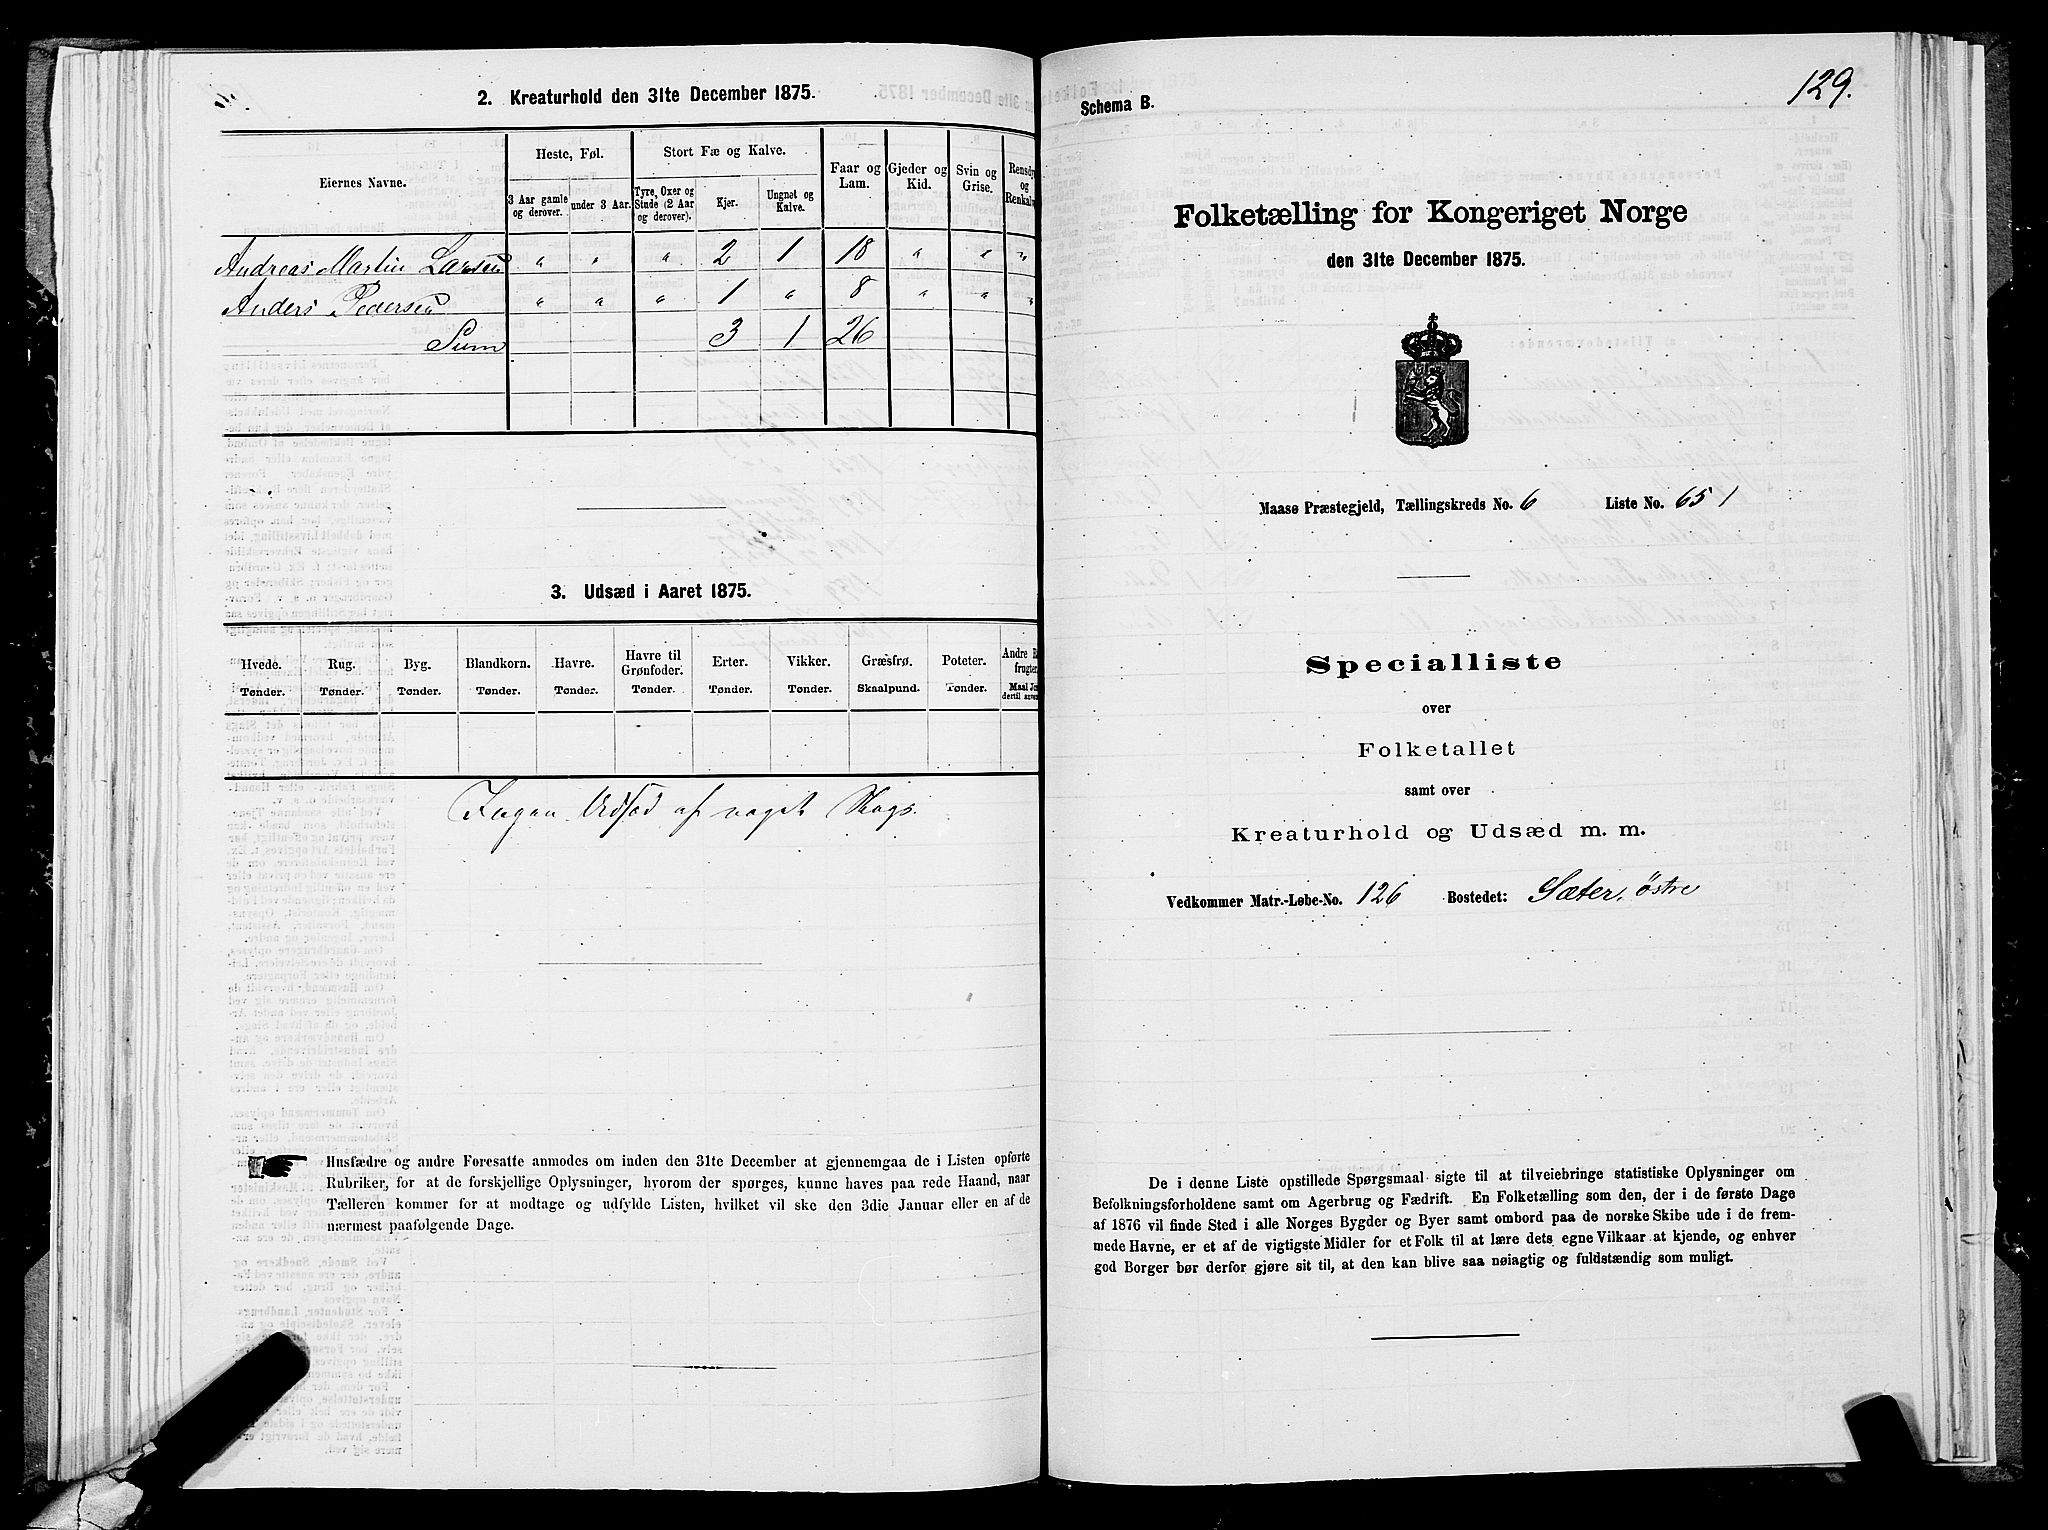 2. Kreaturhold den 31te December 1875.
Eiernes Navne.
Heste, Føl.
Stort Fæ og Kalve.
Faar og Lam.
Gjeder og Kid.
Svin og Grise.
Rensdyr og Renkalve
3 Aar gamle og derover.
under 3 Aar.
Tyre, Oxer og Stude (2 Aar og derover).
Kjør.
Ungnøt og Kalve.
Andreas Martin Larsen " " " 2 1 18 " " "
Anders Pedersen " " " 1 " 8 " " "
Sum 3 1 26
3. Udsæd i Aaret 1875.
Hvede. Rug. Byg. Blandkorn. Havre. Havre til Grønfoder. Erter. Vikker. Græsfrø. Poteter. Andre
Tønder. Tønder. Tønder. Tønder. Tønder. Tønder. Tønder. Tønder. Skaalpund. Tønder. Maal
Ingen Udsæd af noget Slags.
Husfædre og andre Foresatte anmodes om inden den 31te December at gjennemgaa de i Listen opførte
Rubriker, for at de forskjellige Oplysninger, hvorom der spørges, kunne haves paa rede Haand, naar
Tælleren kommer for at modtage og udfylde Listen, hvilket vil ske den 3die Januar eller en af de
nærmest paafølgende Dage.
129.
Schema B.
Folketælling for Kongeriget Norge
den 31te December 1875.
Maasø Præstegjeld, Tællingskreds No. 6 Liste No. 651
Specialliste
over
Folketallet
samt over
Kreaturhold og Udsæd m. m.
Vedkommer Matr.-Løbe-No. 126 Bostedet: Sæter, østre
De i denne Liste opstillede Spørgsmaal sigte til at tilveiebringe statistiske Oplysninger om
Befolkningsforholdene samt om Agerbrug og Fædrift. En Folketælling som den, der i de første Dage
af 1876 vil finde Sted i alle Norges Bygder og Byer samt ombord paa de norske Skibe ude i de frem-
mede Havne, er et af de vigtigste Midler for et Folk til at lære dets egne Vilkaar at kjende, og enhver
god Borger bør derfor gjøre sit til, at den kan blive saa nøiagtig og fuldstændig som muligt.